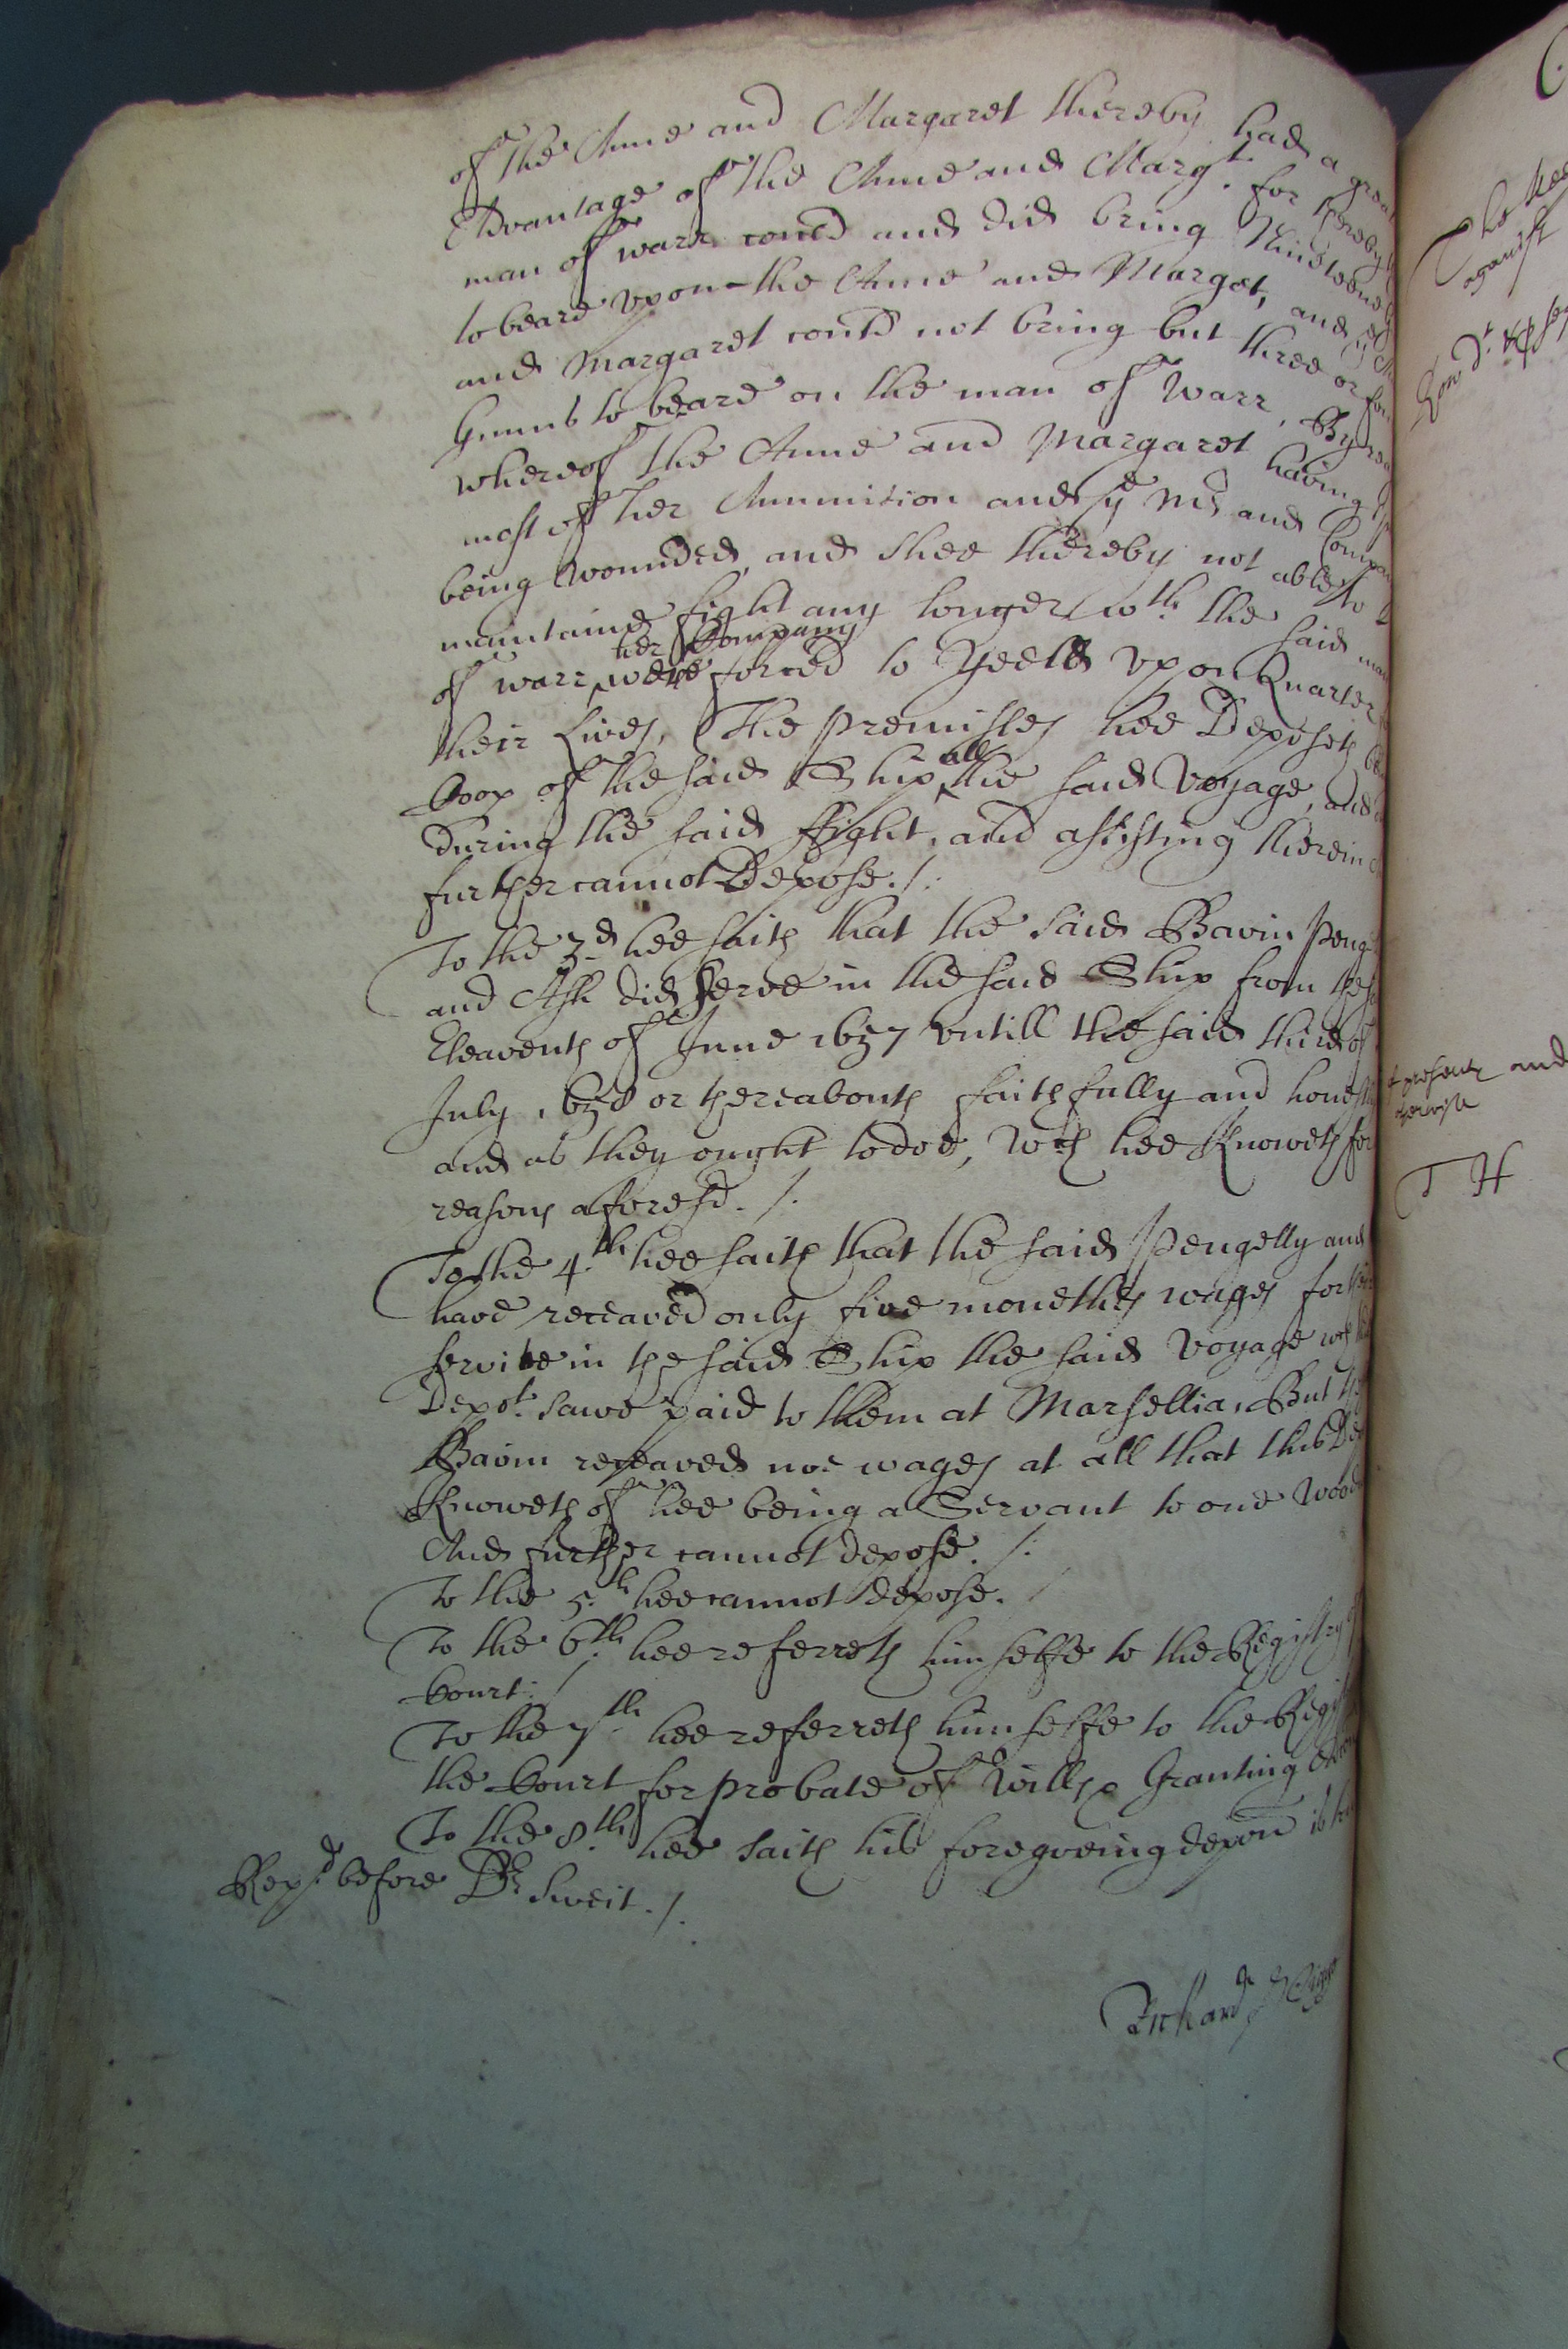 of the Anne and Margaret thereby had a great
Advantage of the Anne and Margt. for thereby
man of warr could and did bring Nineteene
to beare vpon the Anne and Margat, and ye
and Margaret could not bring but three or fou
Gunns to beare on the man of Warr, By rea
whereof the Anne and Margaret having
most of her Ammunicion and ye Mr and Compa
being wounded, and shee thereby not able to
maintaine fight any longer wth. the said man
of warr her Company were forced to Yeeld vpon Quarter
their Lives, The premisses hee Deposeth
Coop of the said Ship all the said Voyage, and
During the said ffight, and assisting therein
further cannot Depose ./.
To the 3.d hee saith that the said Bavin Peng
and Ash did serve in the said Ship from the
Eleaventh of June 1657 vntill the said third of
July 1658 or thereabouts faithfully and honest
and as they ought to doe, wch hee Knoweth for
reasons aforesd. /.
To the 4.th hee saith that the said Pengelly and
have receaved only five moneths wages for their
service in the said Ship the said Voyage wch
Depot. sawe paid to them at Marsellia, But the
Bavin receaved noe wages at all that this De
Knoweth of hee being a Servant to one Wood
And further cannot depose. /.
To the 5.th hee cannot depose. /
To the 6th. hee referreth himselfe to the Registry
Court: /
To the 7th. hee referreth himselfe to the Regist
the Court for probate of Wills & Granting
To the 8.th hee saith his foregoeing depon is
Repd. before Dr Sweit ./.
Richard
The
against
present and
otherwise
T H